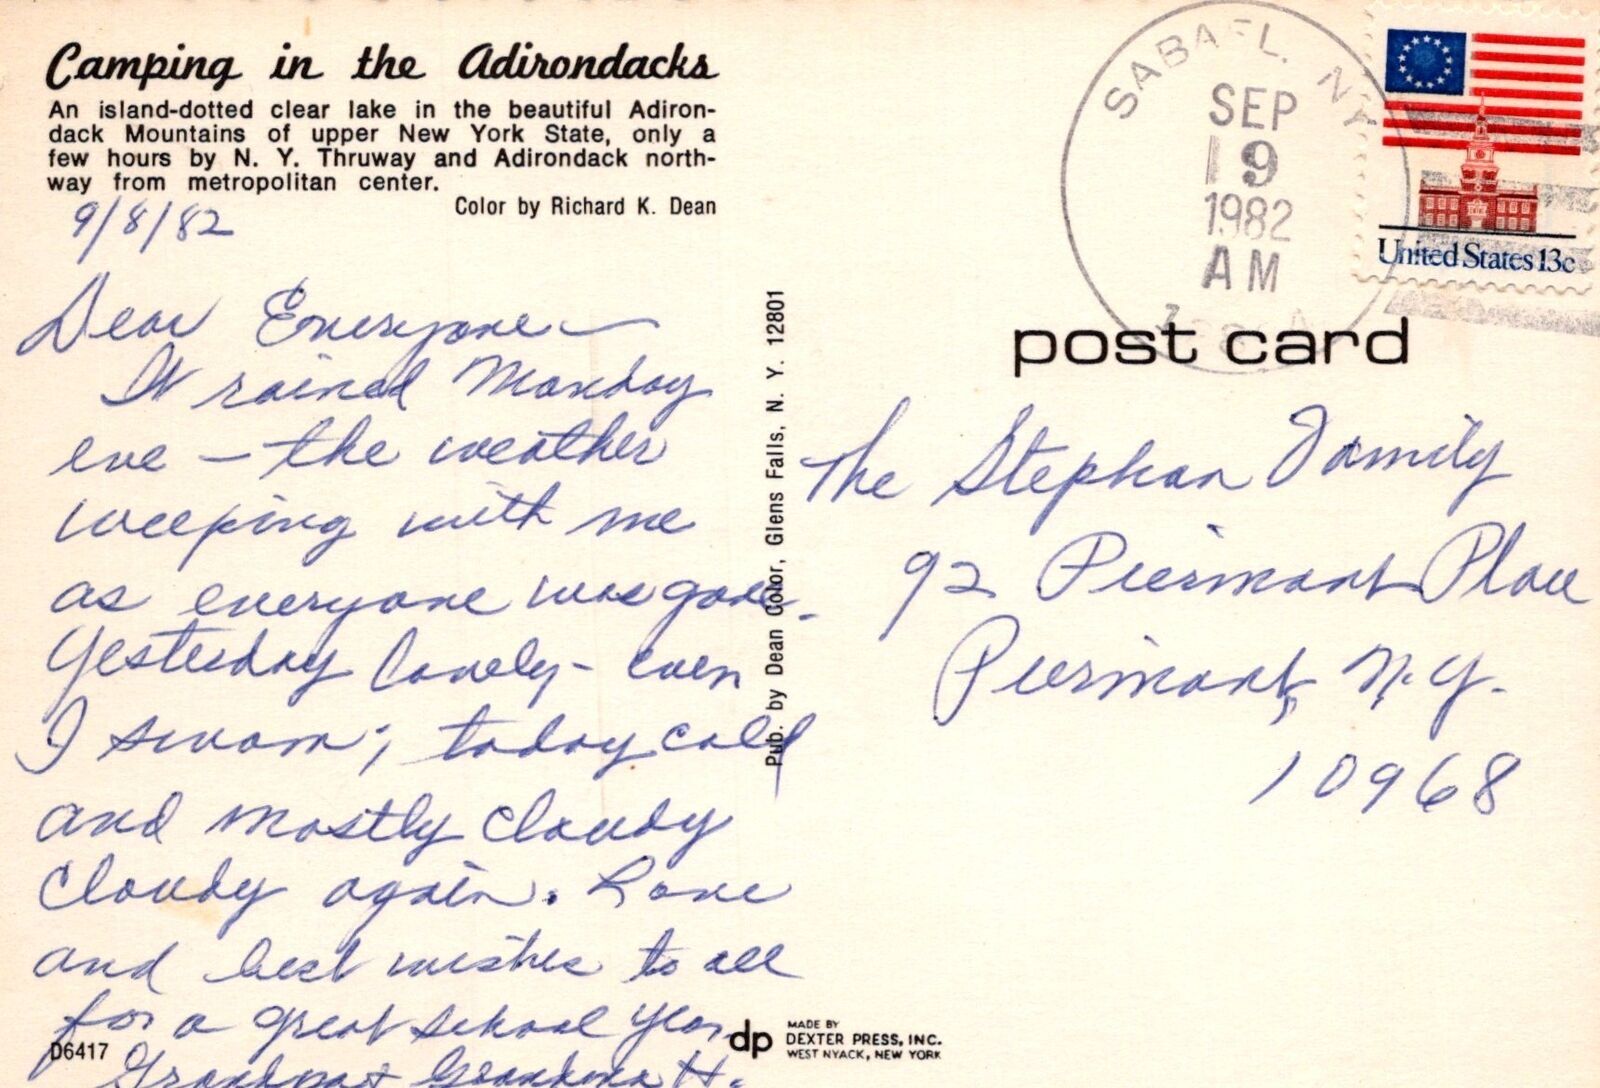 Camping in the Adirondacks
An island-dotted clear lake in the beautiful Adiron-
dack Mountains of upper New York State, only a
few hours by N. Y. Thruway and Adirondack north-
way from metropolitan center.
Color by Richard K. Dean
9/8/82
Dear Everyone —
It rained Monday
eve — the weather
weeping with me
as everyone was gone.
Yesterday lovely - even
I swam; today cold
and mostly cloudy
cloudy again. Love
and best wishes to all
for a great school year
Grandpa + Grandma H.
D6417
Pub. by Dean Color, Glens Falls, N. Y. 12801
dp
MADE BY
DEXTER PRESS, INC.
WEST NYACK, NEW YORK
SABAEL, NY
SEP
9
1982
AM
United States 13c
post card
The Stephan Family
92 Piermont Place
Piermont, N.Y.
10968